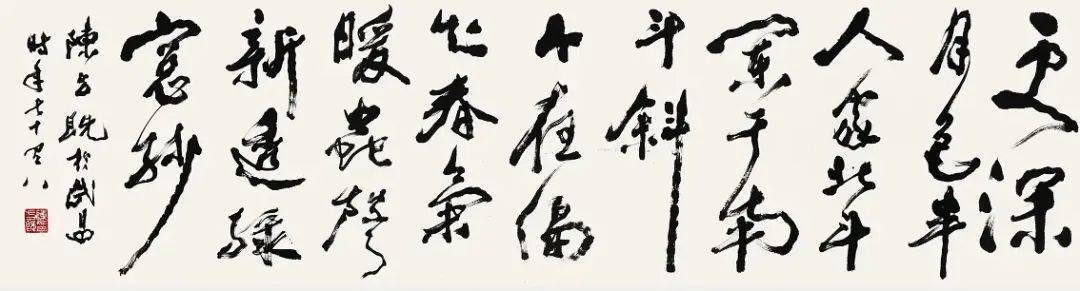 更深
月色半
人家北斗
闌干南
斗斜
今夜偏
知春氣
暖蟲聲
新透綠
窗紗
陳方既於武昌
時年七十有八